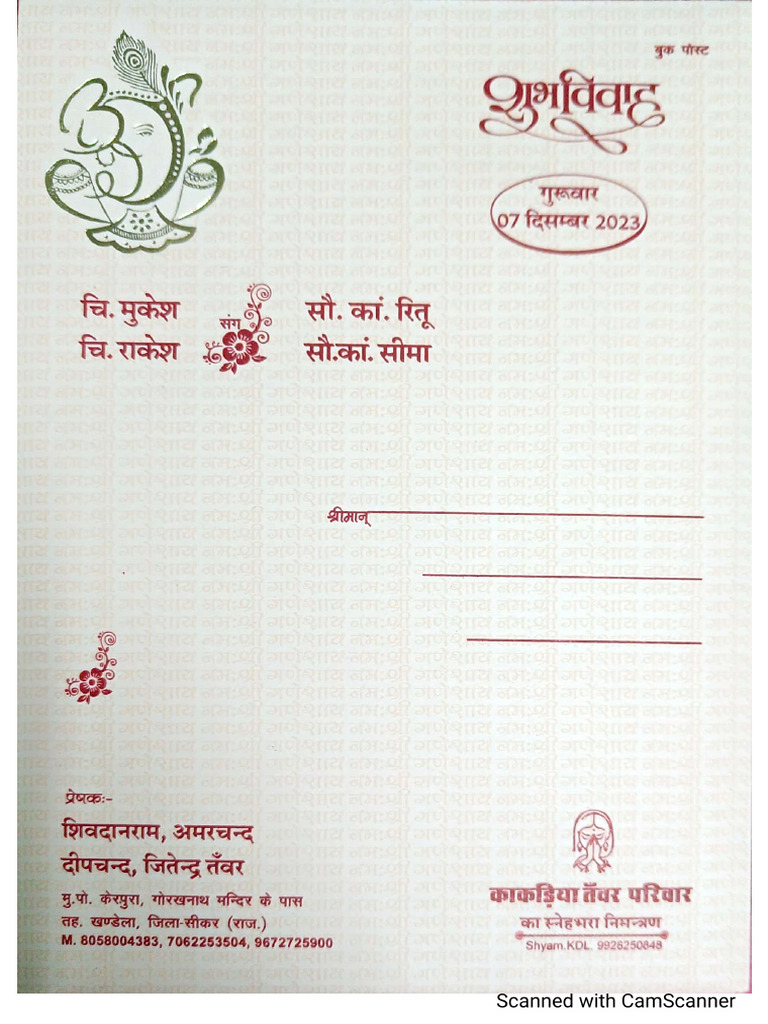 बुक पोस्ट
शुभविवाह
गुरूवार
07 दिसम्बर 2023
चि. मुकेश संग सौ. कां. रितू
चि. राकेश सौ.कां. सीमा
श्रीमान्
प्रेषकः-
शिवदानराम, अमरचन्द
दीपचन्द, जितेन्द्र तँवर
मु.पो. केरपुरा, गोरखनाथ मन्दिर के पास
तह. खण्डेला, जिला-सीकर (राज.)
M. 8058004383, 7062253504, 9672725900
काकड़िया तँवर परिवार
का स्नेहभरा निमन्त्रण
Shyam.KDL. 9926250848
Scanned with CamScanner